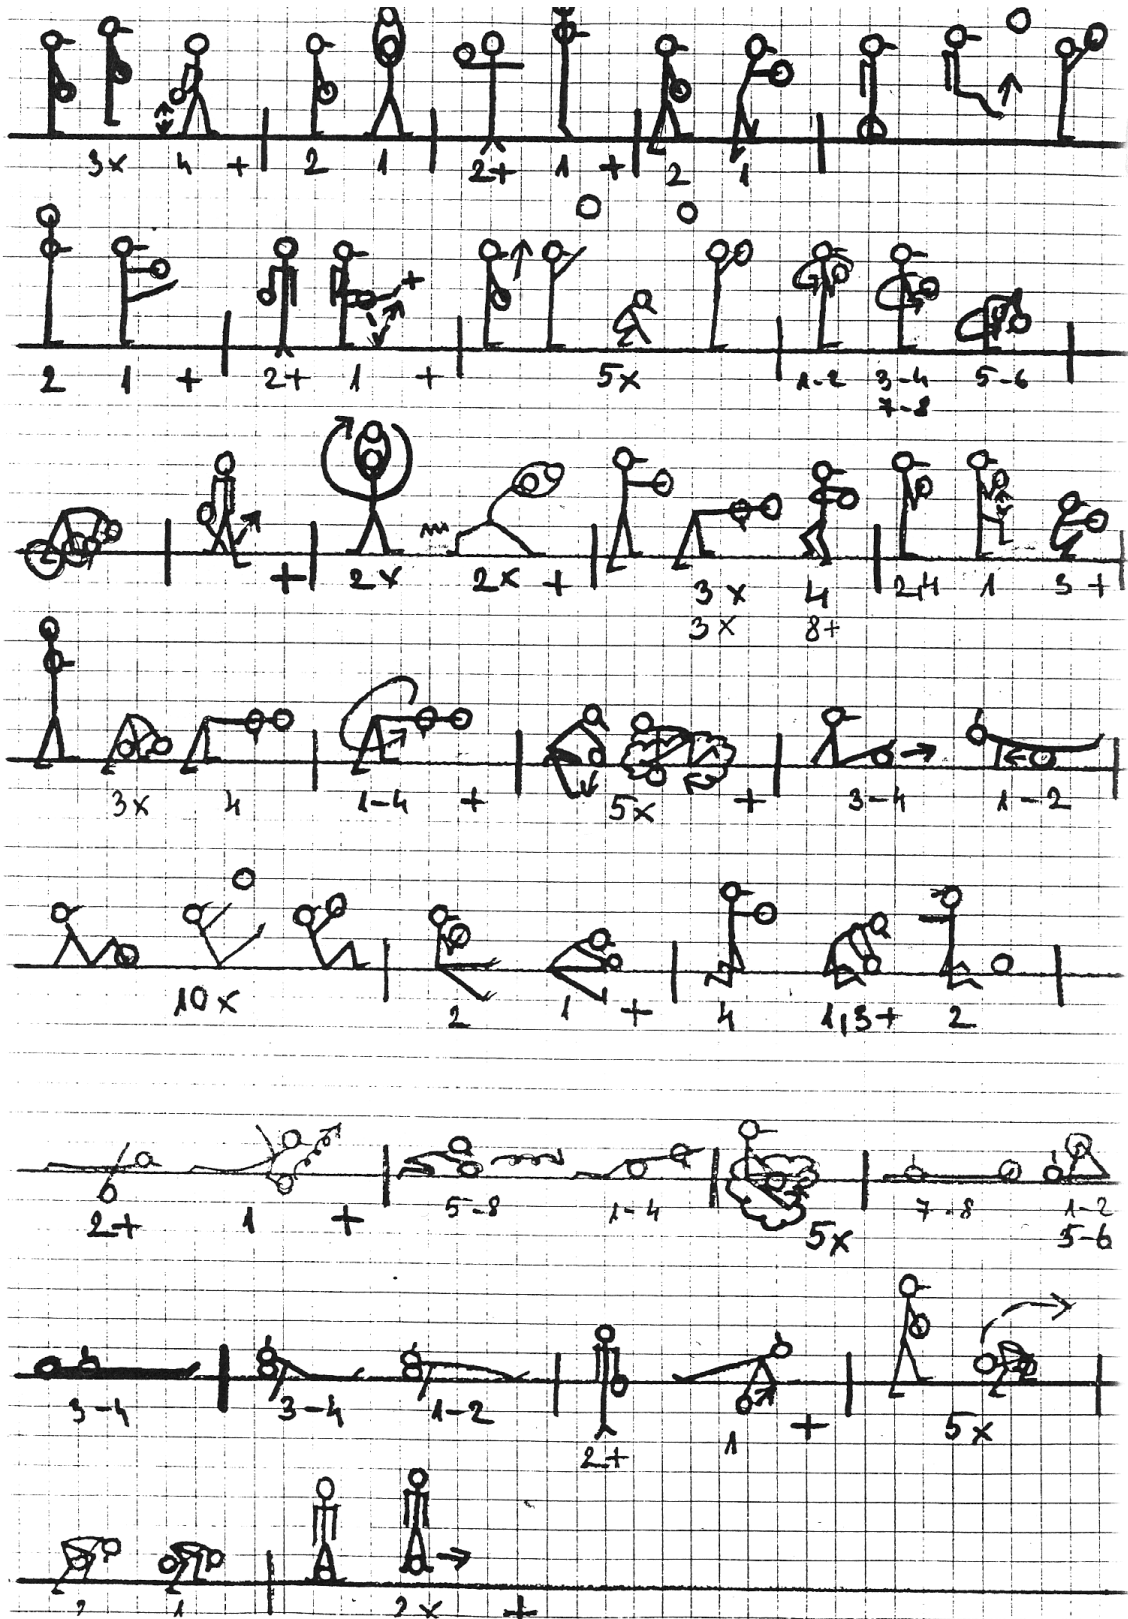 3x 4 + 2 1 2+ 1 + 2 1
2 1 + 2+ 1 + 5x 1-2 3-4 5-6
7-8
+ 2x 2x + 3x 4 2,4 1 3+
3x 8+
3x 4 1-4 + 5x + 3-4 1-2
10x 2 1 + 4 1,3+ 2
2+ 1 + 5-8 1-4 5x 7-8 1-2
5-6
3-4 3-4 1-2 2+ 1 + 5x
2 1 2x +